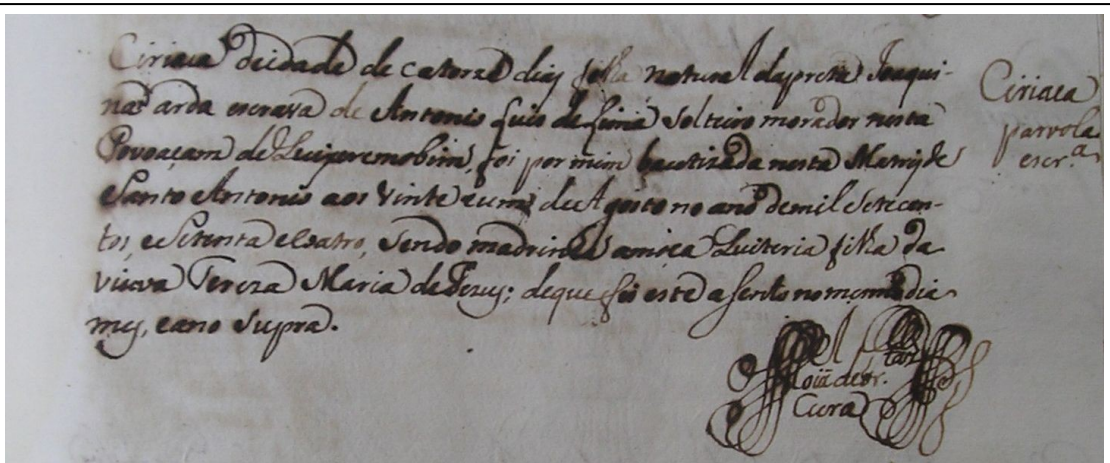 Ciriaca deidade de catorze dias filha natural dapreta Joaqui-
na parda escrava de Antonio Luis de Lima Solteiro morador nesta
Povoaçam de foi por mim bautizada nesta Matriz de
Santo Antonio aos Vinte eum de Agosto no ano demil Setecen-
tos, eSetenta eCatro, Sendo madrinha amica Quiteria filha da
viuva Tereza Maria deJezus; deque fis este aSento nomesmo dia
mes, eano Supra.
Ciriaca
parvola
escr.ª
Cura